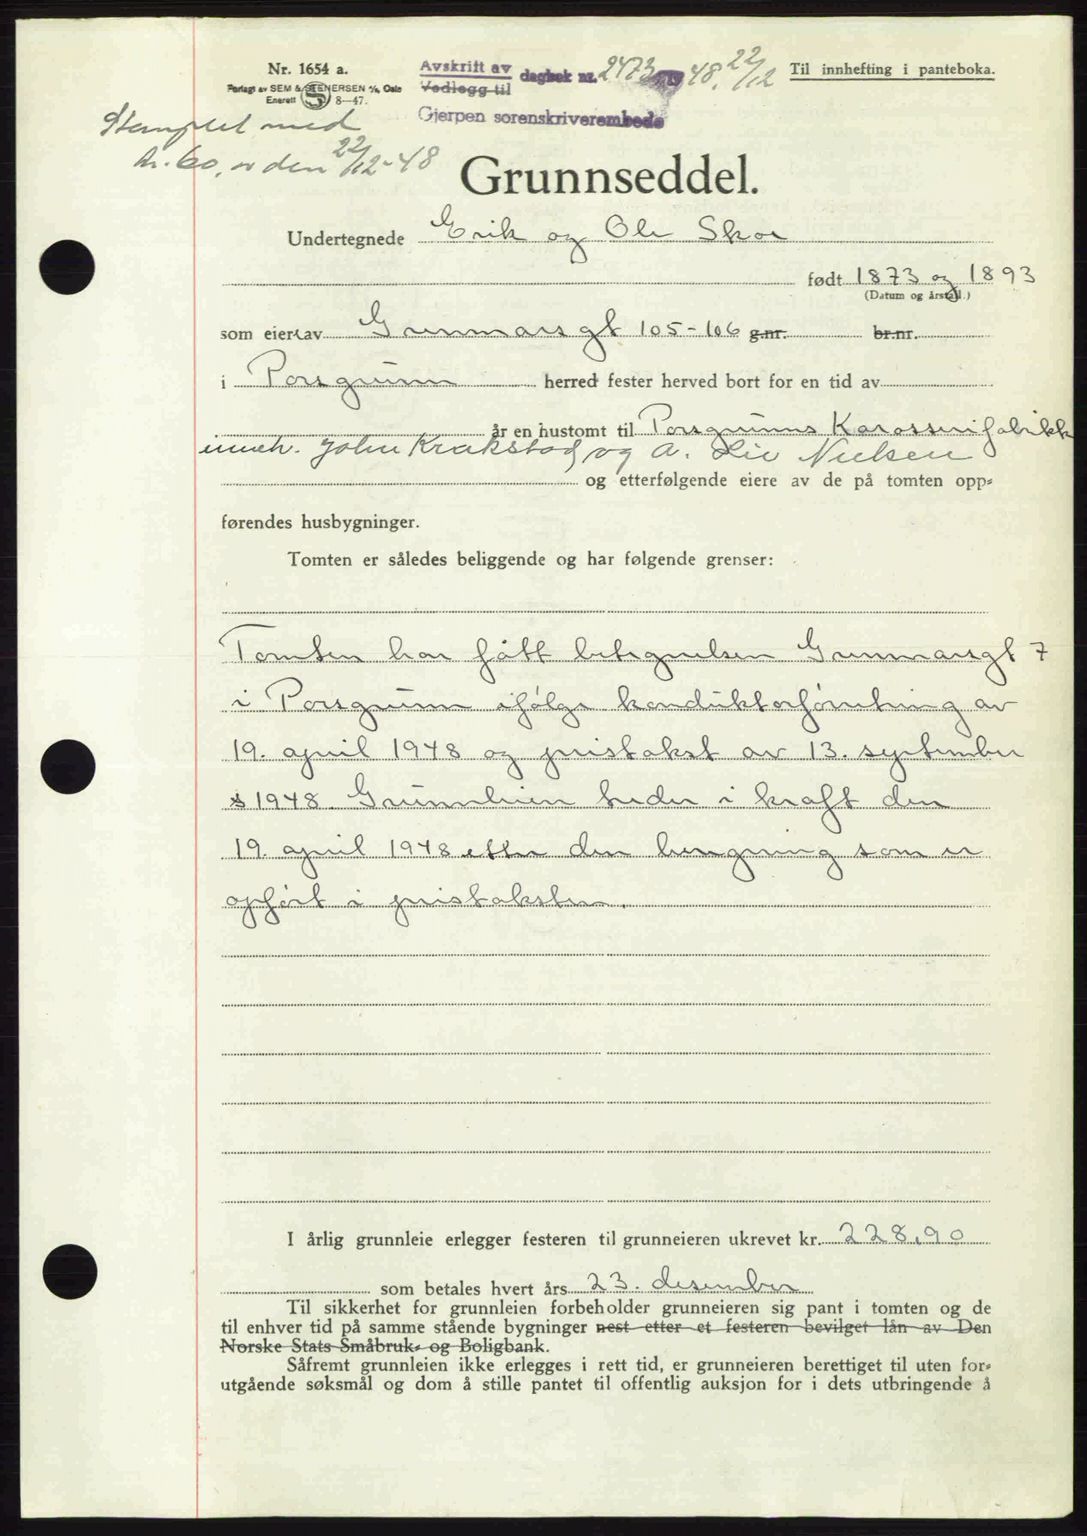 Nr. 1654 a.
Forlagt av SEM & STENERSEN A/S, Oslo
Enerett 8—47.
Avskrift av
Vedlegg til
dagbok nr. 2473 1948, 22/12
Gjerpen sorenskriverembede
Til innhefting i panteboka.
Stemplet med
kr. 60, den 22/12-48
Grunnseddel.
Undertegnede Erik og Ole Skoe
født 1873 og 1893
(Datum og årstall.)
som eier av Gunnarsgt 105-106 g.nr. br.nr.
i Porsgrunn herred fester herved bort for en tid av
år en hustomt til Porsgrunns Karosserifabrikk
inneh. John Krakstad og A. Lie Nielsen
og etterfølgende eiere av de på tomten opp-
førendes husbygninger.
Tomten er således beliggende og har følgende grenser:
Tomten har fått betegnelsen Gunnarsgt 7
i Porsgrunn ifølge konduktørforretning av
19. april 1948 og pristakst av 13. september
1948. Grunnleien treder i kraft den
19. april 1948 etter den beregning som er
opført i pristaksten.
I årlig grunnleie erlegger festeren til grunneieren ukrevet kr. 228,90
som betales hvert års 23. desember
Til sikkerhet for grunnleien forbeholder grunneieren sig pant i tomten og de
til enhver tid på samme stående bygninger nest etter et festeren bevilget lån av Den
Norske Stats Småbruk- og Boligbank.
Såfremt grunnleien ikke erlegges i rett tid, er grunneieren berettiget til uten for-
utgående søksmål og dom å stille pantet til offentlig auksjon for i dets utbringende å